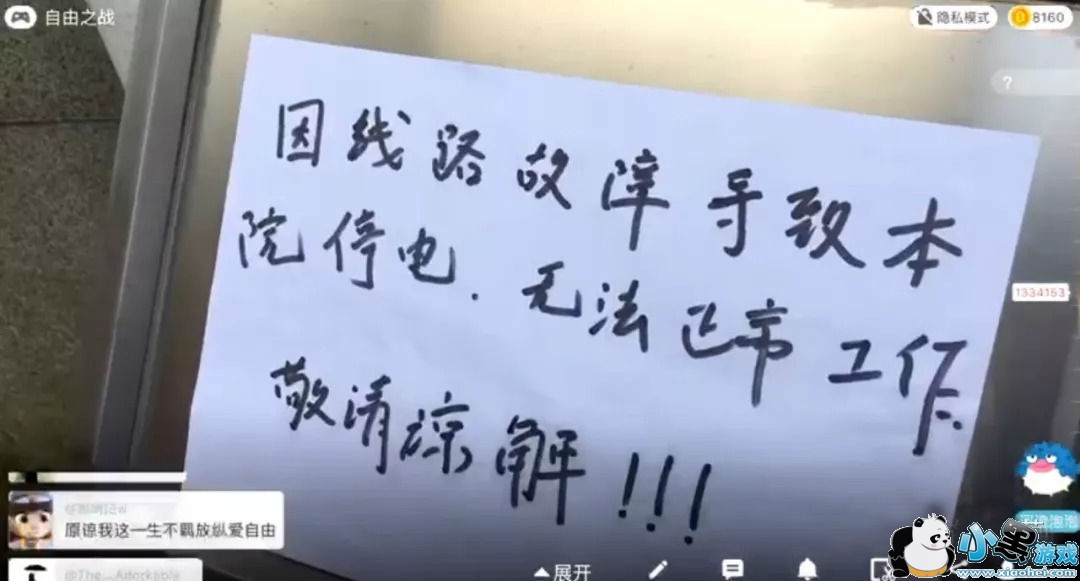 自由之战
隐私模式
8160
?
因线路故障导致本
院停电.无法正常工作
敬请谅解!!!
1334153
原谅我这一生不羁放纵爱自由
@The_Adorkable
展开
小黑游戏
www.xiaohei.com